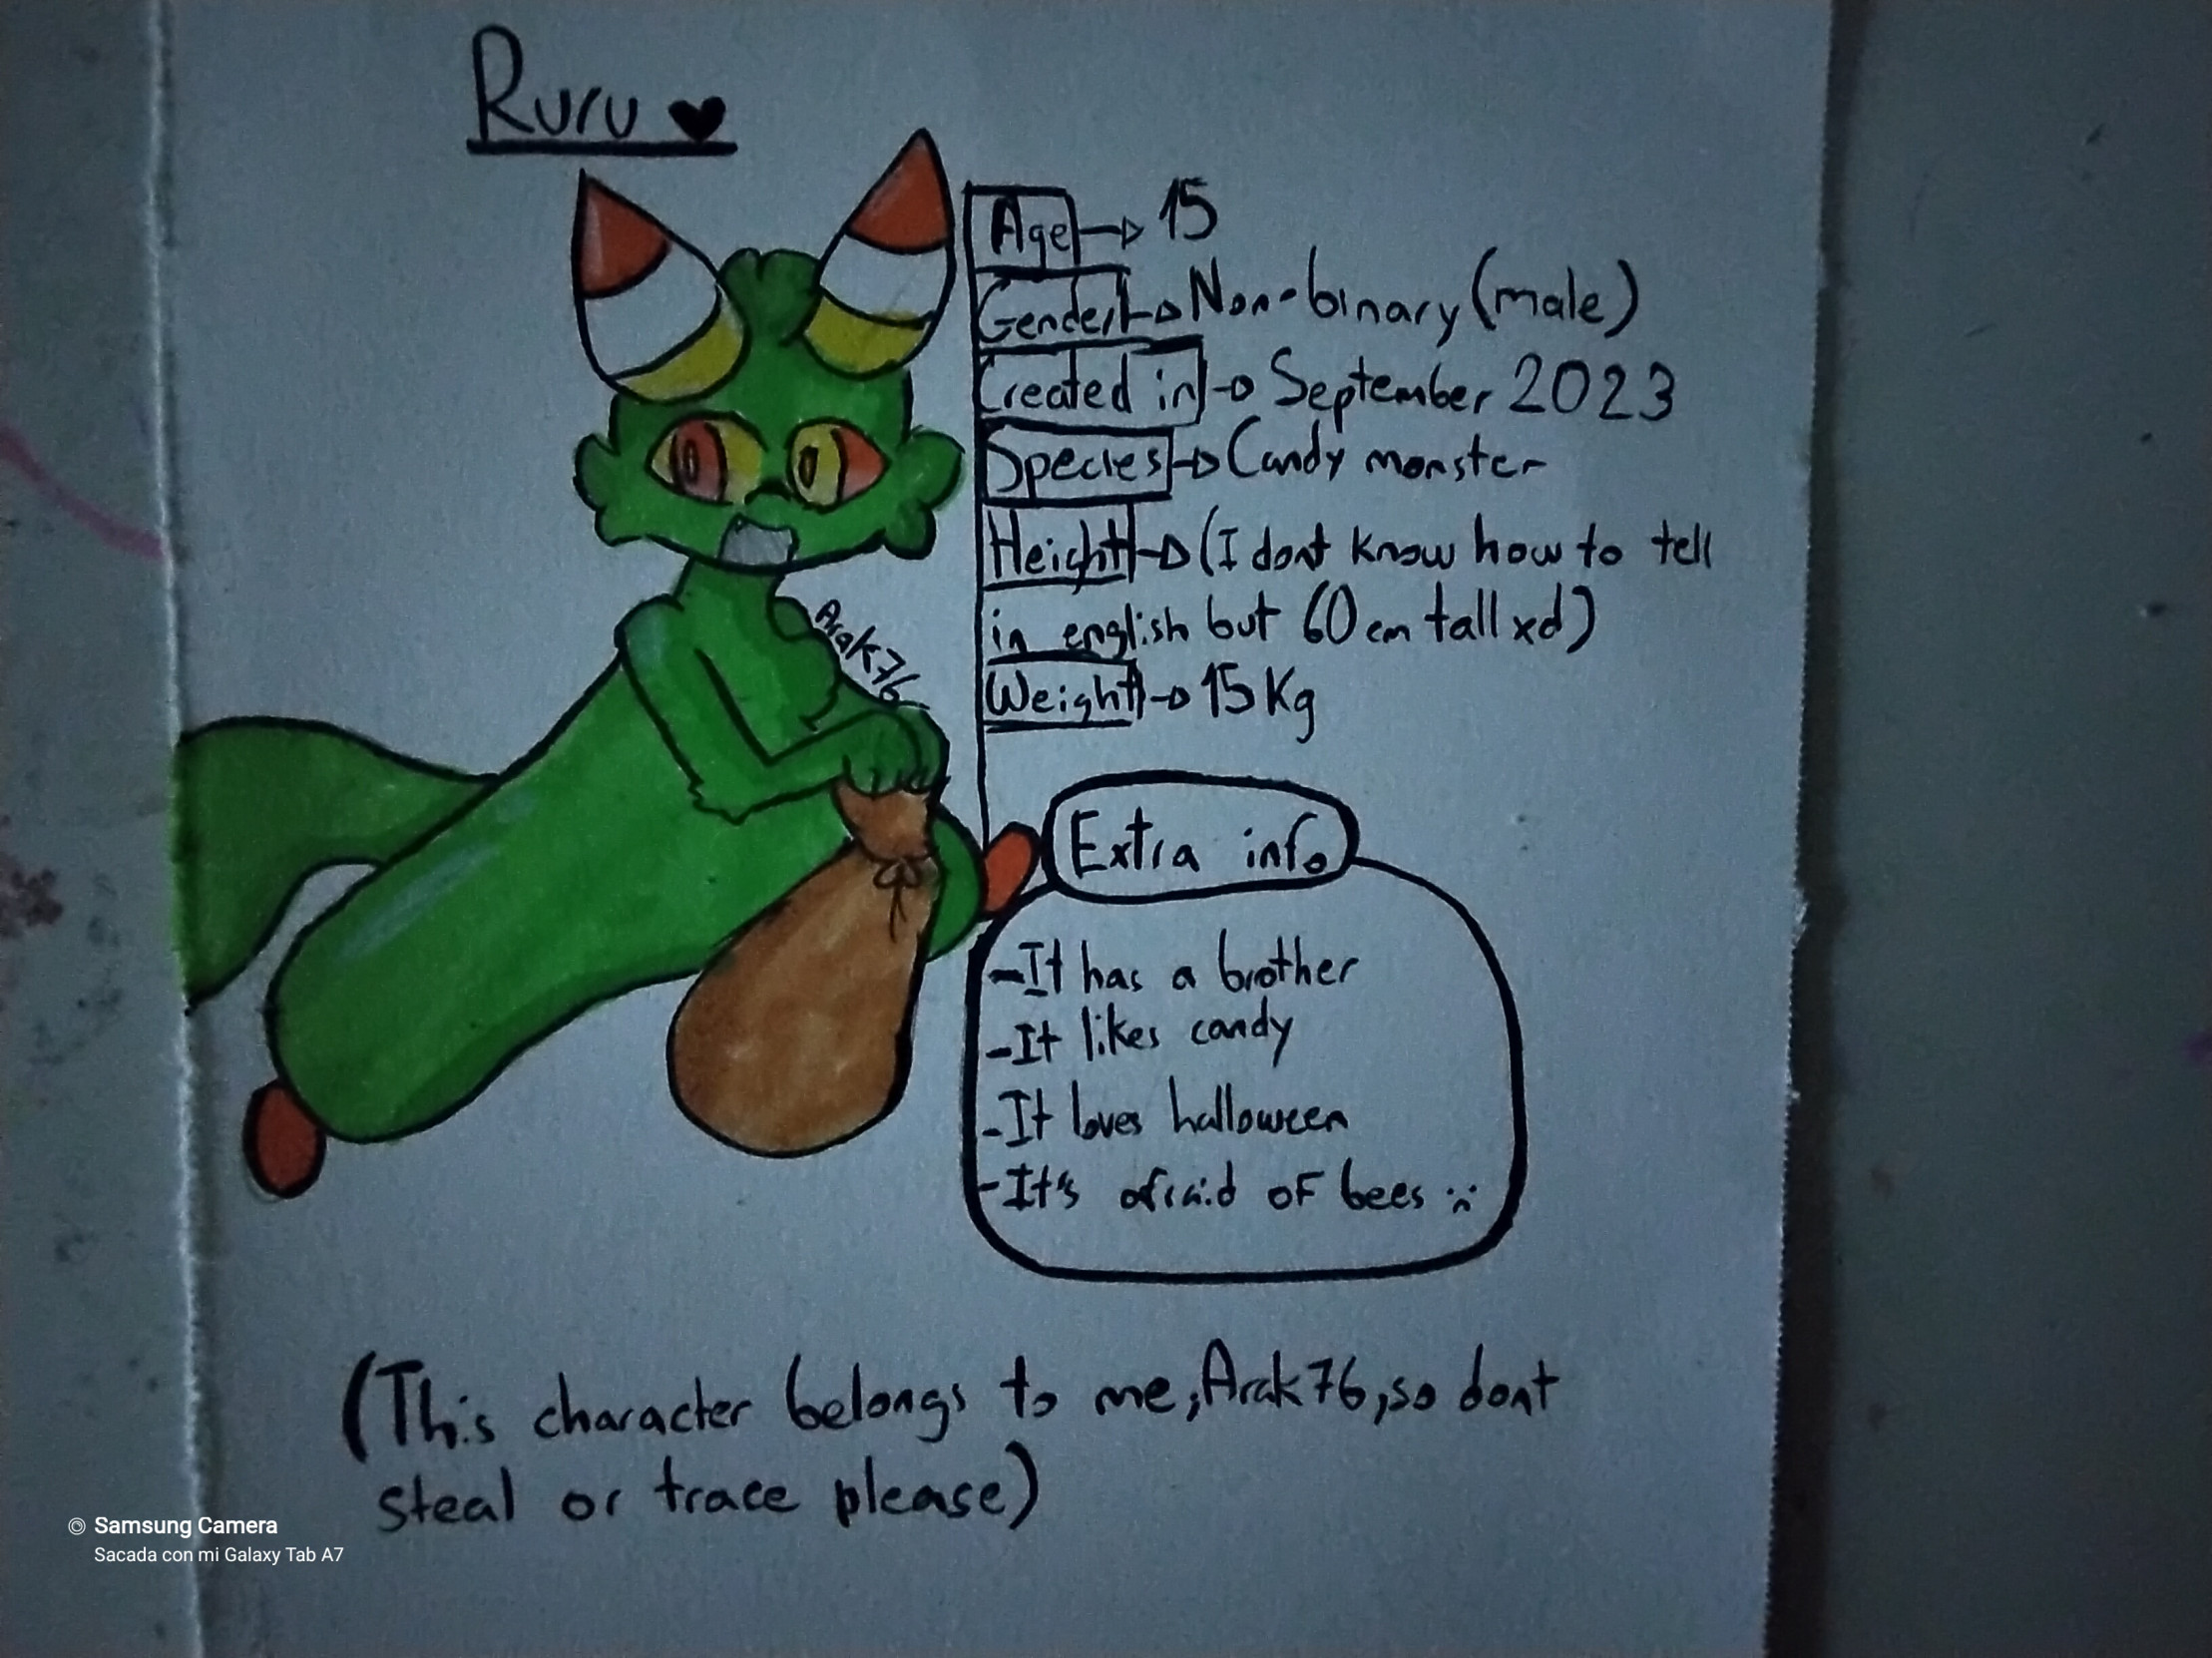 Ruru ♥
Age → 15
Gender → Non-binary (male)
Created in → September 2023
Species → Candy monster
Height → (I dont know how to tell
in english but 60 cm tall xd)
Arak76
Weight → 15 Kg
Extra info
-It has a brother
-It likes candy
-It loves halloween
-It's afraid of bees :(
(This character belongs to me, Arak76, so dont
steal or trace please)
Samsung Camera
Sacada con mi Galaxy Tab A7